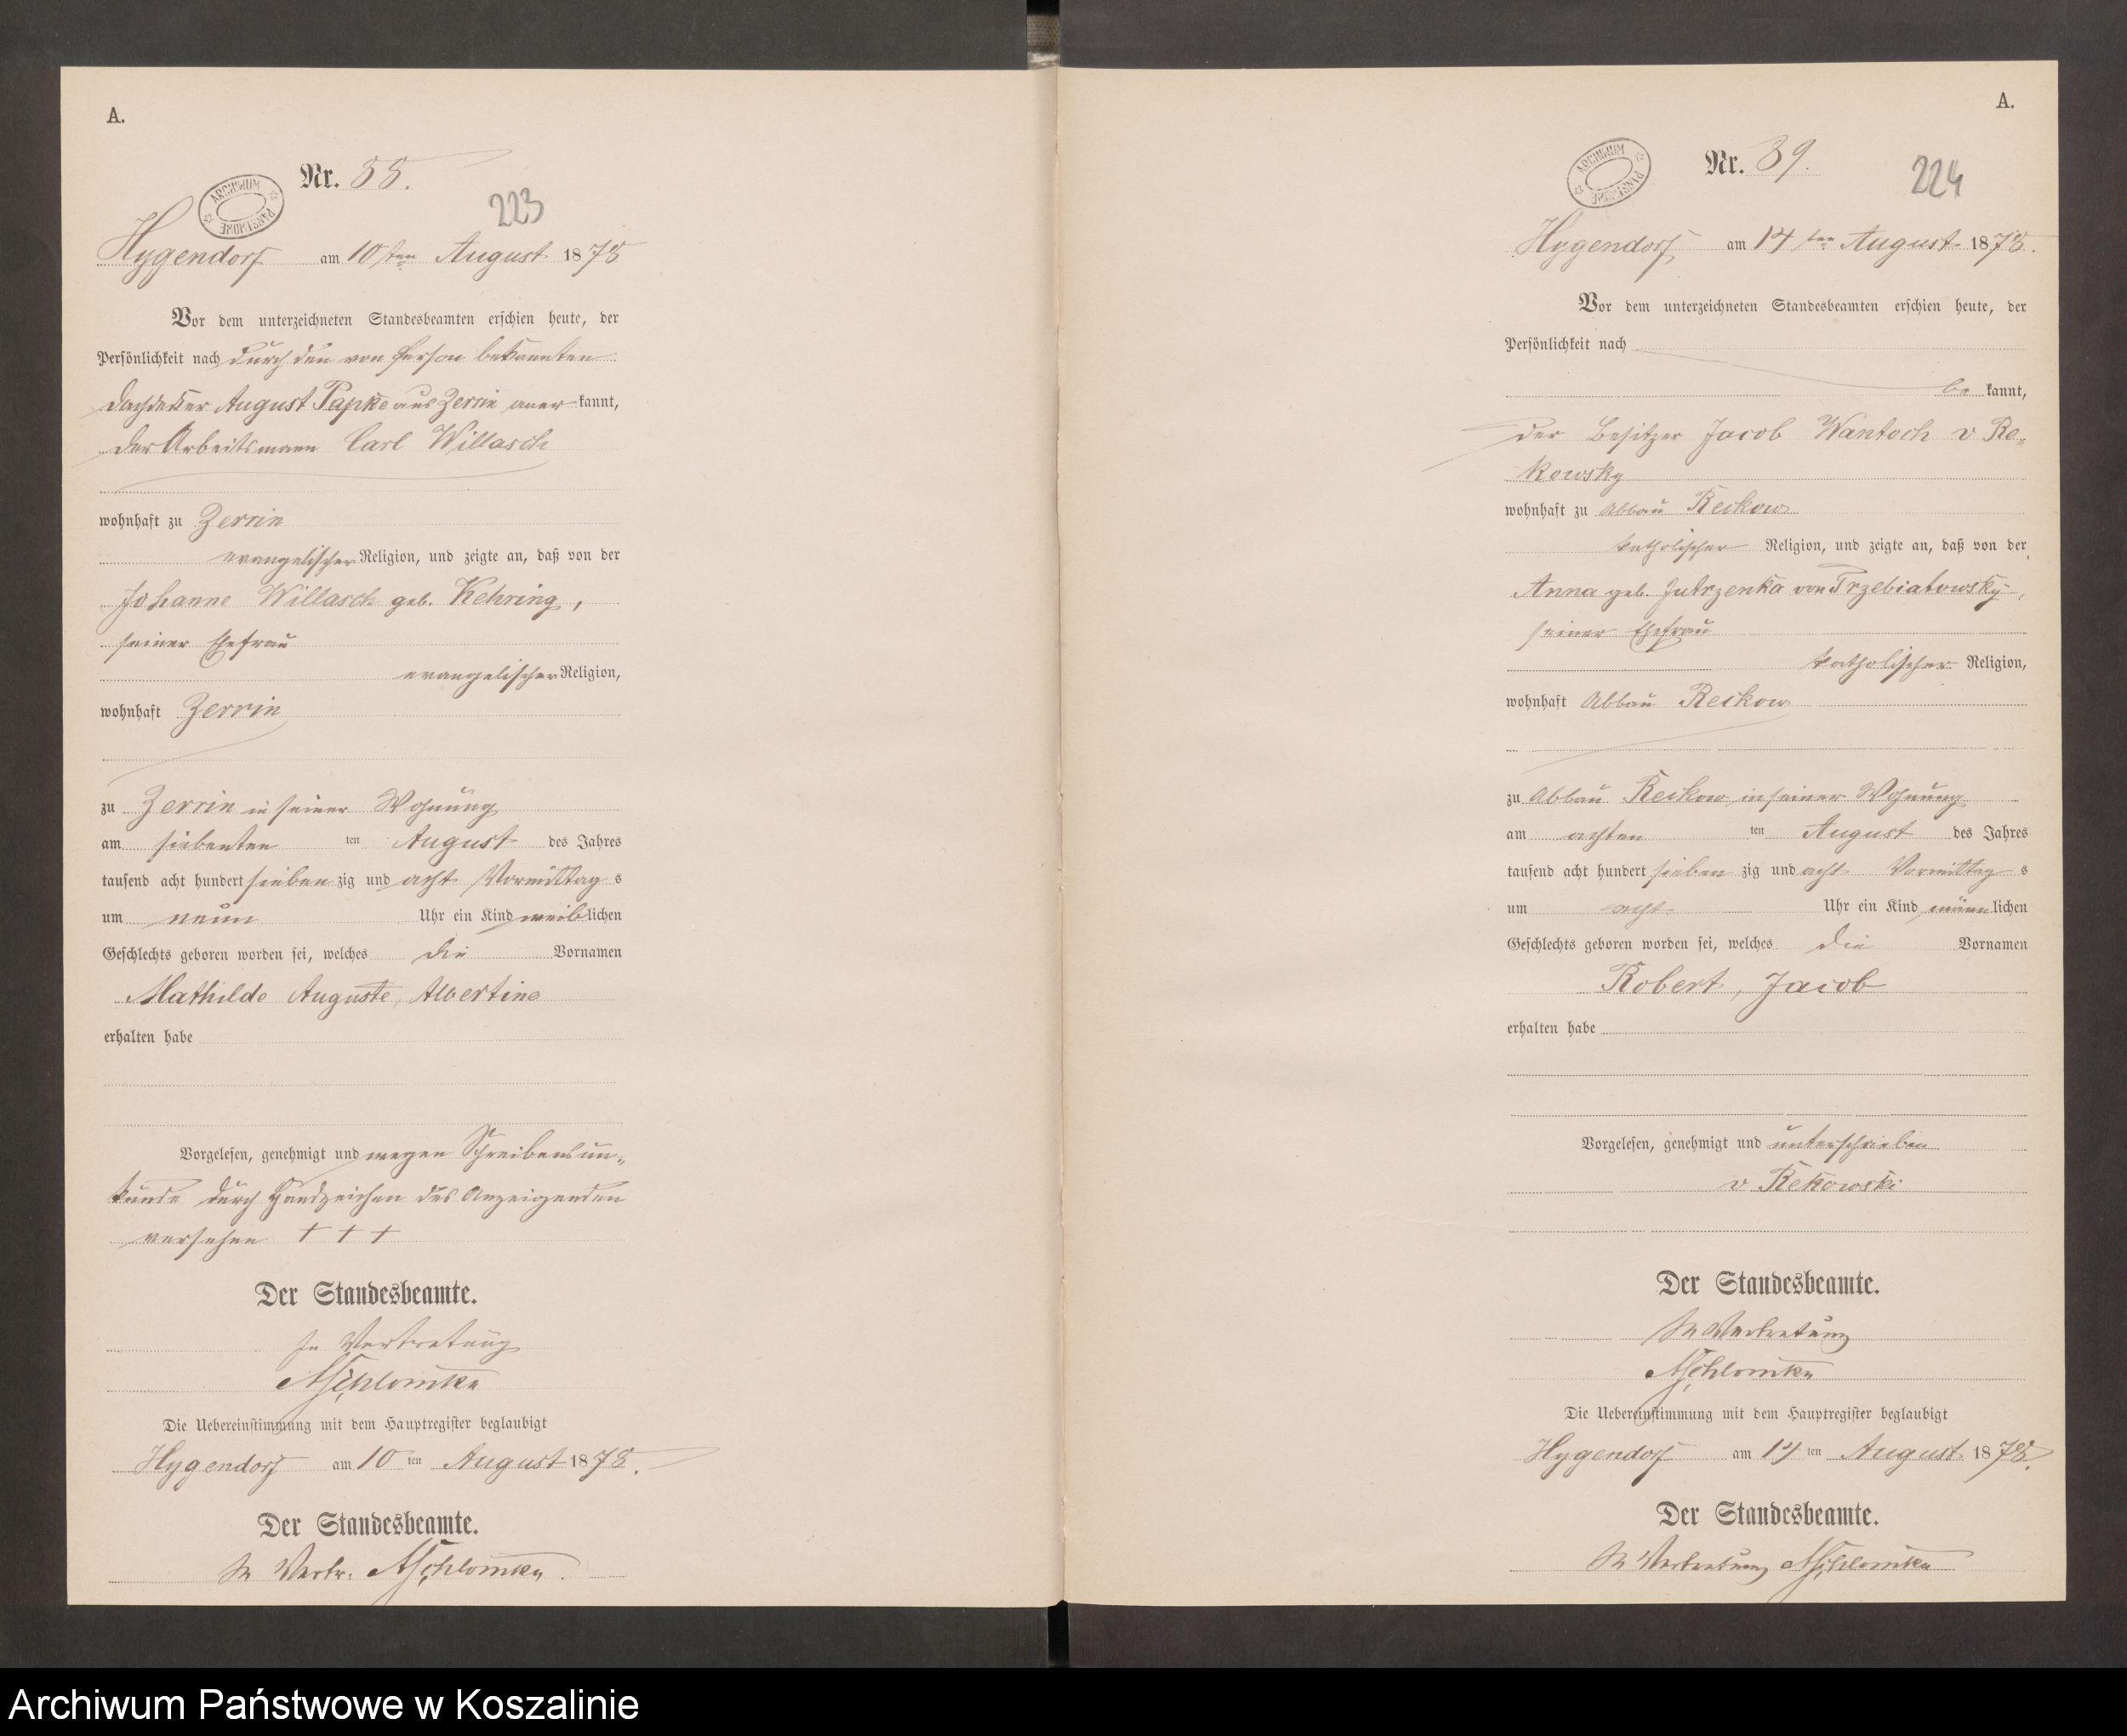 A.
Nr. 38.
ARCHIWUM PAŃSTWOWE
223
Hygendorf am 10 ten August 1878
Vor dem unterzeichneten Standesbeamten erschien heute, der
Persönlichkeit nach durch den von Person bekannten
Dachdecker August Papke aus Zerrin aner kannt,
der Arbeitsmann Carl Willasch
wohnhaft zu Zerrin
evangelischer Religion, und zeigte an, daß von der
Johanne Willasch geb. Kehring,
seiner Ehefrau
evangelischer Religion,
wohnhaft Zerrin
zu Zerrin in seiner Wohnung
am siebenten ten August des Jahres
tausend acht hundert sieben zig und acht Vormittag s
um neun Uhr ein Kind weiblichen
Geschlechts geboren worden sei, welches die Vornamen
Mathilde Auguste, Albertine
erhalten habe
Vorgelesen, genehmigt und wegen Schreibensun-
kunde durch Handzeichen des Anzeigenden
versehen + + +
Der Standesbeamte.
In Vertretung
Die Uebereinstimmung mit dem Hauptregister beglaubigt
Hygendorf am 10 ten August 1878.
Der Standesbeamte.
In Vertr.
A.
Nr. 39.
ARCHIWUM PAŃSTWOWE
224
Hygendorf am 14 ten August 1878.
Vor dem unterzeichneten Standesbeamten erschien heute, der
Persönlichkeit nach
be kannt,
der Besitzer Jacob Wantoch v Re-
kowsky
wohnhaft zu Abbau Reckow
katholischer Religion, und zeigte an, daß von der
Anna geb. Jutrzenka von Przebiatowsky,
seiner Ehefrau
katholischer Religion,
wohnhaft Abbau Reckow
zu Abbau Reckow in seiner Wohnung
am achten ten August des Jahres
tausend acht hundert sieben zig und acht Vormittag s
um acht Uhr ein Kind männlichen
Geschlechts geboren worden sei, welches die Vornamen
Robert, Jacob
erhalten habe
Vorgelesen, genehmigt und unterschrieben
v Rekowski
Der Standesbeamte.
In Vertretung
Die Uebereinstimmung mit dem Hauptregister beglaubigt
Hygendorf am 14 ten August 1878.
Der Standesbeamte.
In Vertretung
Archiwum Państwowe w Koszalinie